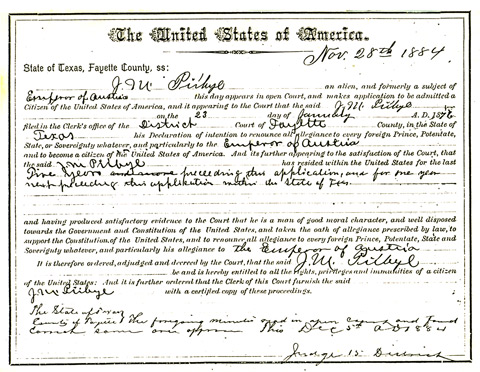 The United States of America.
Nov. 28th 1884.
State of Texas, Fayette County, ss:
J. M. Pribyl an alien, and formerly a subject of
Emperor of Austria this day appears in open Court, and makes application to be admitted a
Citizen of the United States of America, and it appearing to the Court that the said J. M. Pribyl
on the 23 day of January A. D. 1876
filed in the Clerk's office of the District Court of Fayette County, in the State of
Texas his Declaration of intention to renounce all allegiance to every foreign Prince, Potentate,
State, or Sovereignty whatever, and particularly to the Emperor of Austria
and to become a citizen of the United States of America. And its further appearing to the satisfaction of the Court, that
the said J. M. Pribyl has resided within the United States for the last
Five Years preceeding this application, and for one year
next preceeding this application within the State of Texas.
and having produced satisfactory evidence to the Court that he is a man of good moral character, and well disposed
towards the Government and Constitution of the United States, and taken the oath of allegiance prescribed by law, to
support the Constitution of the United States, and to renounce all allegiance to every foreign Prince, Potentate, State and
Sovereignty whatever, and particularly his allegiance to The Emperor of Austria
It is therefore ordered, adjudged and decreed by the Court, that the said J. M. Pribyl
be and is hereby entitled to all the rights, privileges and immunities of a citizen
of the United States: And it is further ordered that the Clerk of this Court furnish the said
J M Pribyl with a certified copy of these proceedings.
The State of Texas
County of Fayette The foregoing minutes read in open Court and found
correct same are approved This Dec 5th A D 1884
Judge District